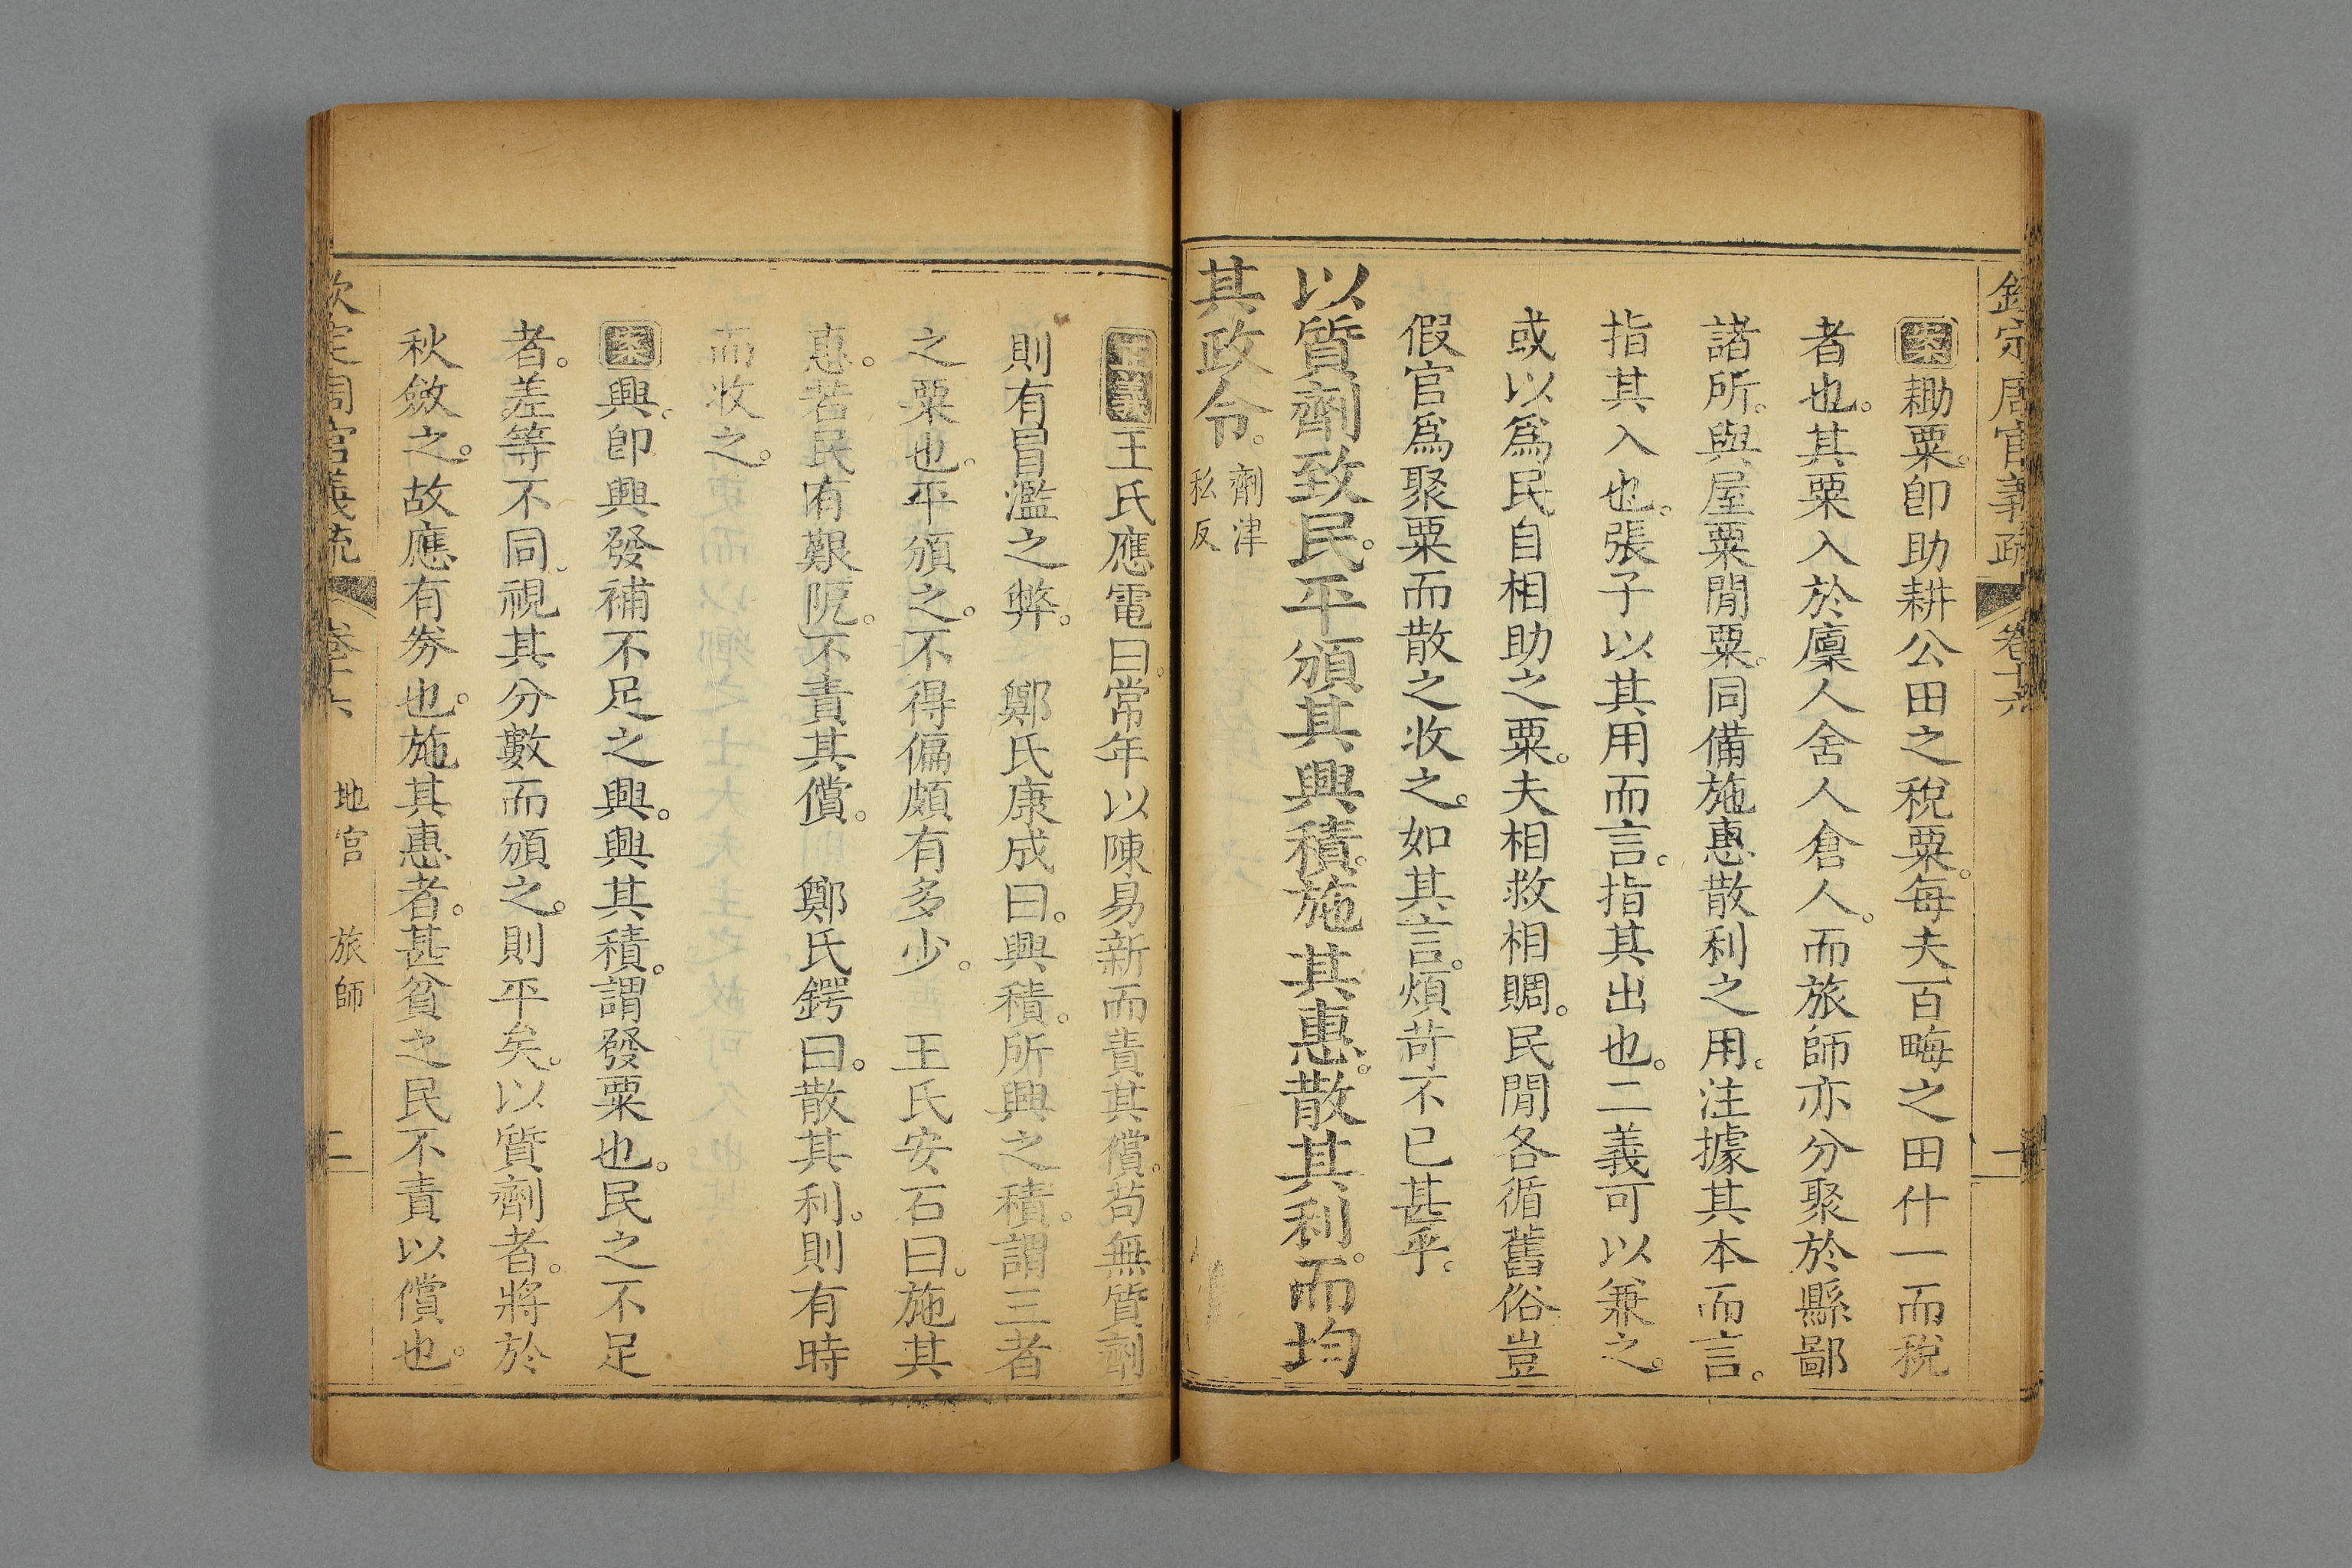 欽定周官義疏 卷十六 一
案耡粟。卽助耕公田之稅粟。每夫百畮之田什一而稅
者也。其粟入於廩人舍人倉人。而旅師亦分聚於縣鄙
諸所。與屋粟閒粟。同備施惠散利之用。注據其本而言。
指其入也。張子以其用而言。指其出也。二義可以兼之。
或以爲民自相助之粟。夫相救相賙。民閒各循舊俗豈
假官爲聚粟而散之收之。如其言。煩苛不已甚乎。
以質劑致民。平頒其興積。施其惠。散其利。而均
其政令。劑津私反
正義王氏應電曰。常年以陳易新而責其償。苟無質劑
則有冒濫之弊。 鄭氏康成曰。興積。所興之積。謂三者
之粟也。平頒之。不得偏頗有多少。 王氏安石曰。施其
惠。若民有艱阨。不責其償。 鄭氏鍔曰。散其利。則有時
而收之。
案興。卽興發補不足之興。興其積。謂發粟也。民之不足
者。差等不同。視其分數而頒之。則平矣。以質劑者。將於
秋斂之。故應有券也。施其惠者。甚貧之民不責以償也。
欽定周官義疏 卷十六 地官 旅師 二